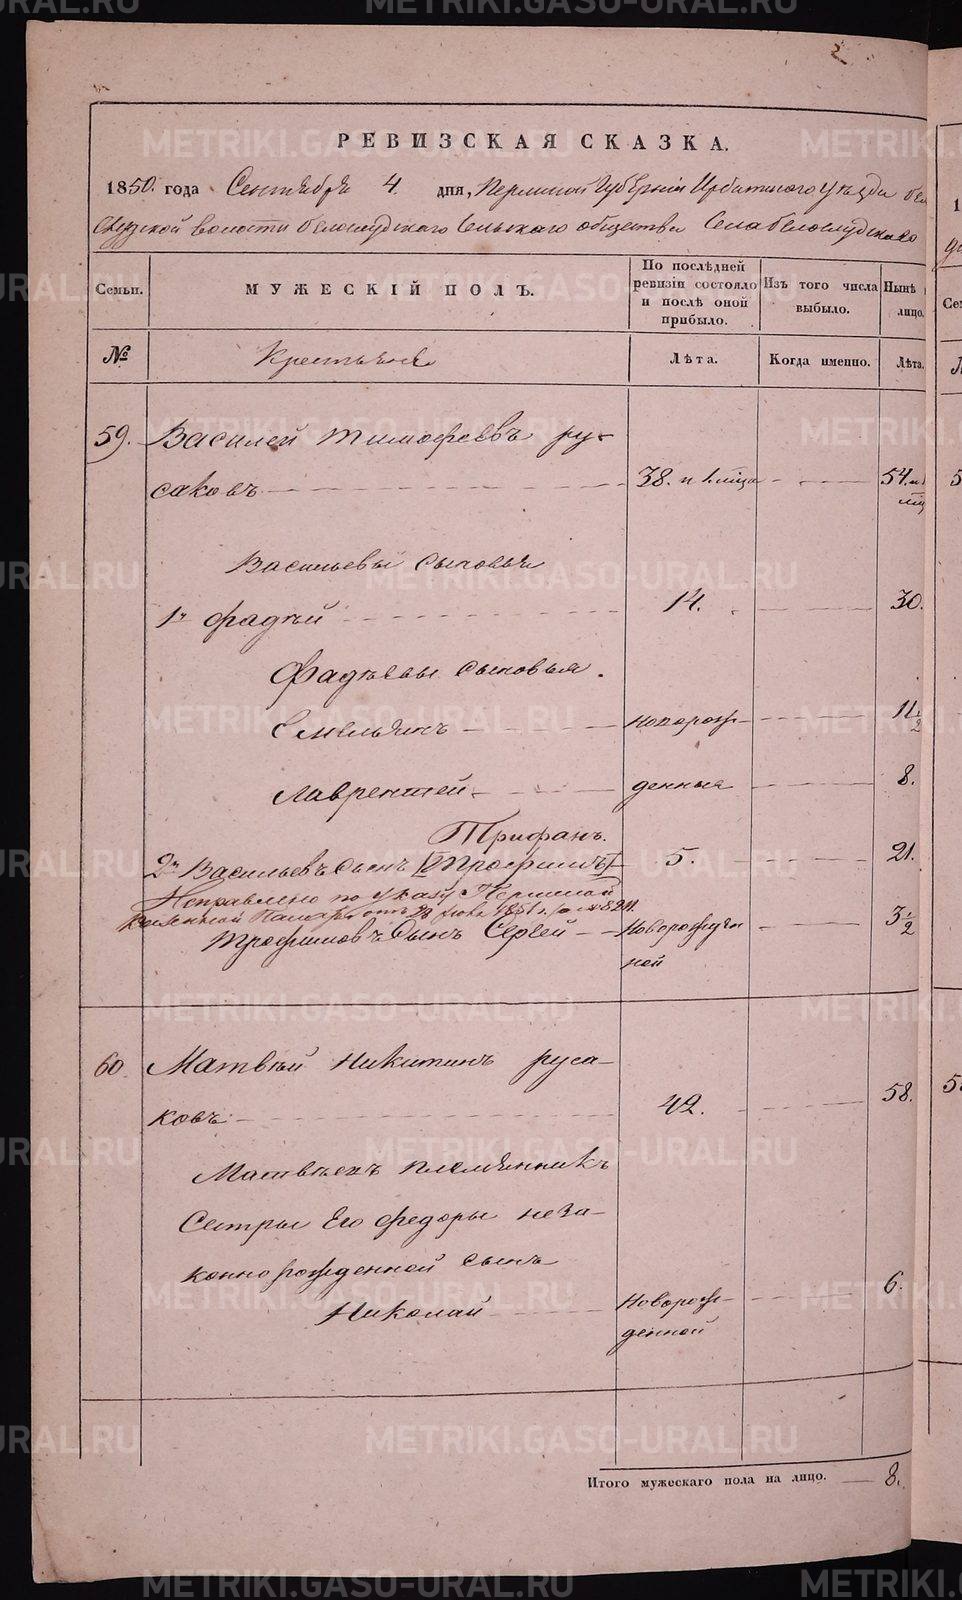 РЕВИЗСКАЯ СКАЗКА.
1850. года Сентября 4 дня, Пермской Губерніи Ирбитского уезда бело
слудской волости белослудского сельского общества села белослудского
Семьи. МУЖЕСКІЙ ПОЛЪ. По послѣдней ревизіи состояло и послѣ оной прибыло. Изъ того числа выбыло. Нынѣ лицо.
№ Крестьяне Лѣта. Когда именно. Лѣта.
59. Василей тимофеевъ ру-
саковъ 38. и 1. мца 54. и 1
мц
Васильевы сыновья
1й фадѣй 14. 30.
Фадѣевы сыновья.
Емельянъ новорож- 11 1/2
Лаврентей денныя 8.
Трифанъ.
2й Васильевъ сынъ трофимъ 5. 21.
Исправлено по указу Пермской
казенной Палаты отъ 28 1851 г. за №
трофимовъ сынъ Сергей Новорожден 3 1/2
ной
60. Матвѣй никитинъ руса-
ковъ 42. 58.
Матвѣевъ племянникъ
Сестры Его федоры неза-
коннорожденной сынъ
Николай Новорож- 6.
денной
Итого мужескаго пола на лицо. 8.
METRIKI.GASO-URAL.RU